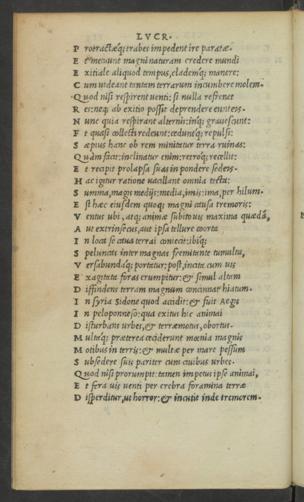 LVCR.
P rotractæq; trabes impedent ire paratæ.
E t metuunt magni naturam credere mundi
E xitiale aliquod tempus, clademq; manere:
C um uideant tantem terrarum incumbere molem.
Q uod nisi respirent uenti: si nulla refrenet
R es: neq; ab exitio possit deprendere euntens.
N unc quia respirant alternis: inq; grauescunt:
E t quasi collecti redeunt: ceduntq; repulsi:
S æpius hanc ob rem minitatur terra ruinas:
Q uàm facit: inclinatur enim: retroq; recellit:
E t recipit prolapsa suas in pondere sedens.
H ac igitur ratione uacillant omnia tecta:
S umma, magis medijs: media, imis: ima, per hilum.
E st hæc eiusdem quoq; magni causa tremoris:
V entus ubi, atq; animæ subito uis maxima quædã,
A ut extrinsecus, aut ipsa tellure coorta
I n loca se cauа terrai coniecit: ibiq;
S peluncas inter magnas fremit ante tumultu,
V ersabundaq; portatur: post, incita cum uis
E xagitata foras erumpitur: & simul altam
D iffindens terram magnum concinnat hiatum.
I n syria Sidone quod accidit: & fuit Aegis
I n peloponneso: qua exitus hic animai
D isturbans urbes, & terræmotus, obortus.
M ultæq; præterea ceciderunt mœnia magnis
M otibus in terris: & multæ per mare pessum
S ubsedere suis pariter cum ciuibus urbes.
Q uod nisi prorumpit: tamen impetus ipse animai,
E t fera uis uenti per crebra foramina terræ
D isperditur, ut horror: & incutit inde tremorem.